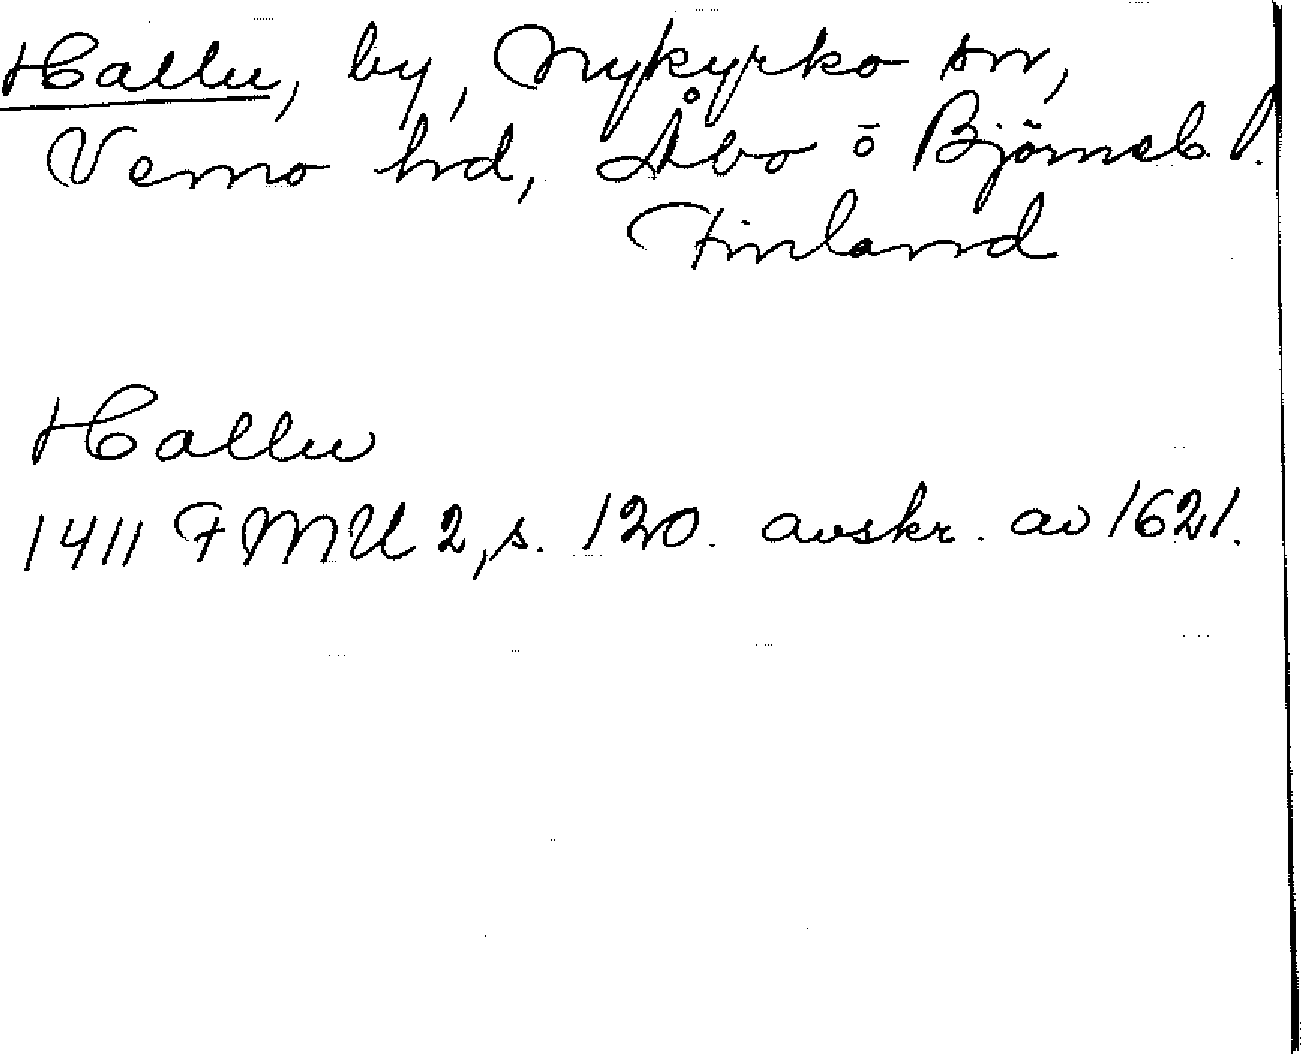 Hallu, by, Nykyrko sn,
Vemo hd, Åbo o Björneb. l.
Finland
Hallu
1411 FMU 2, s. 120. avskr. av 1621.